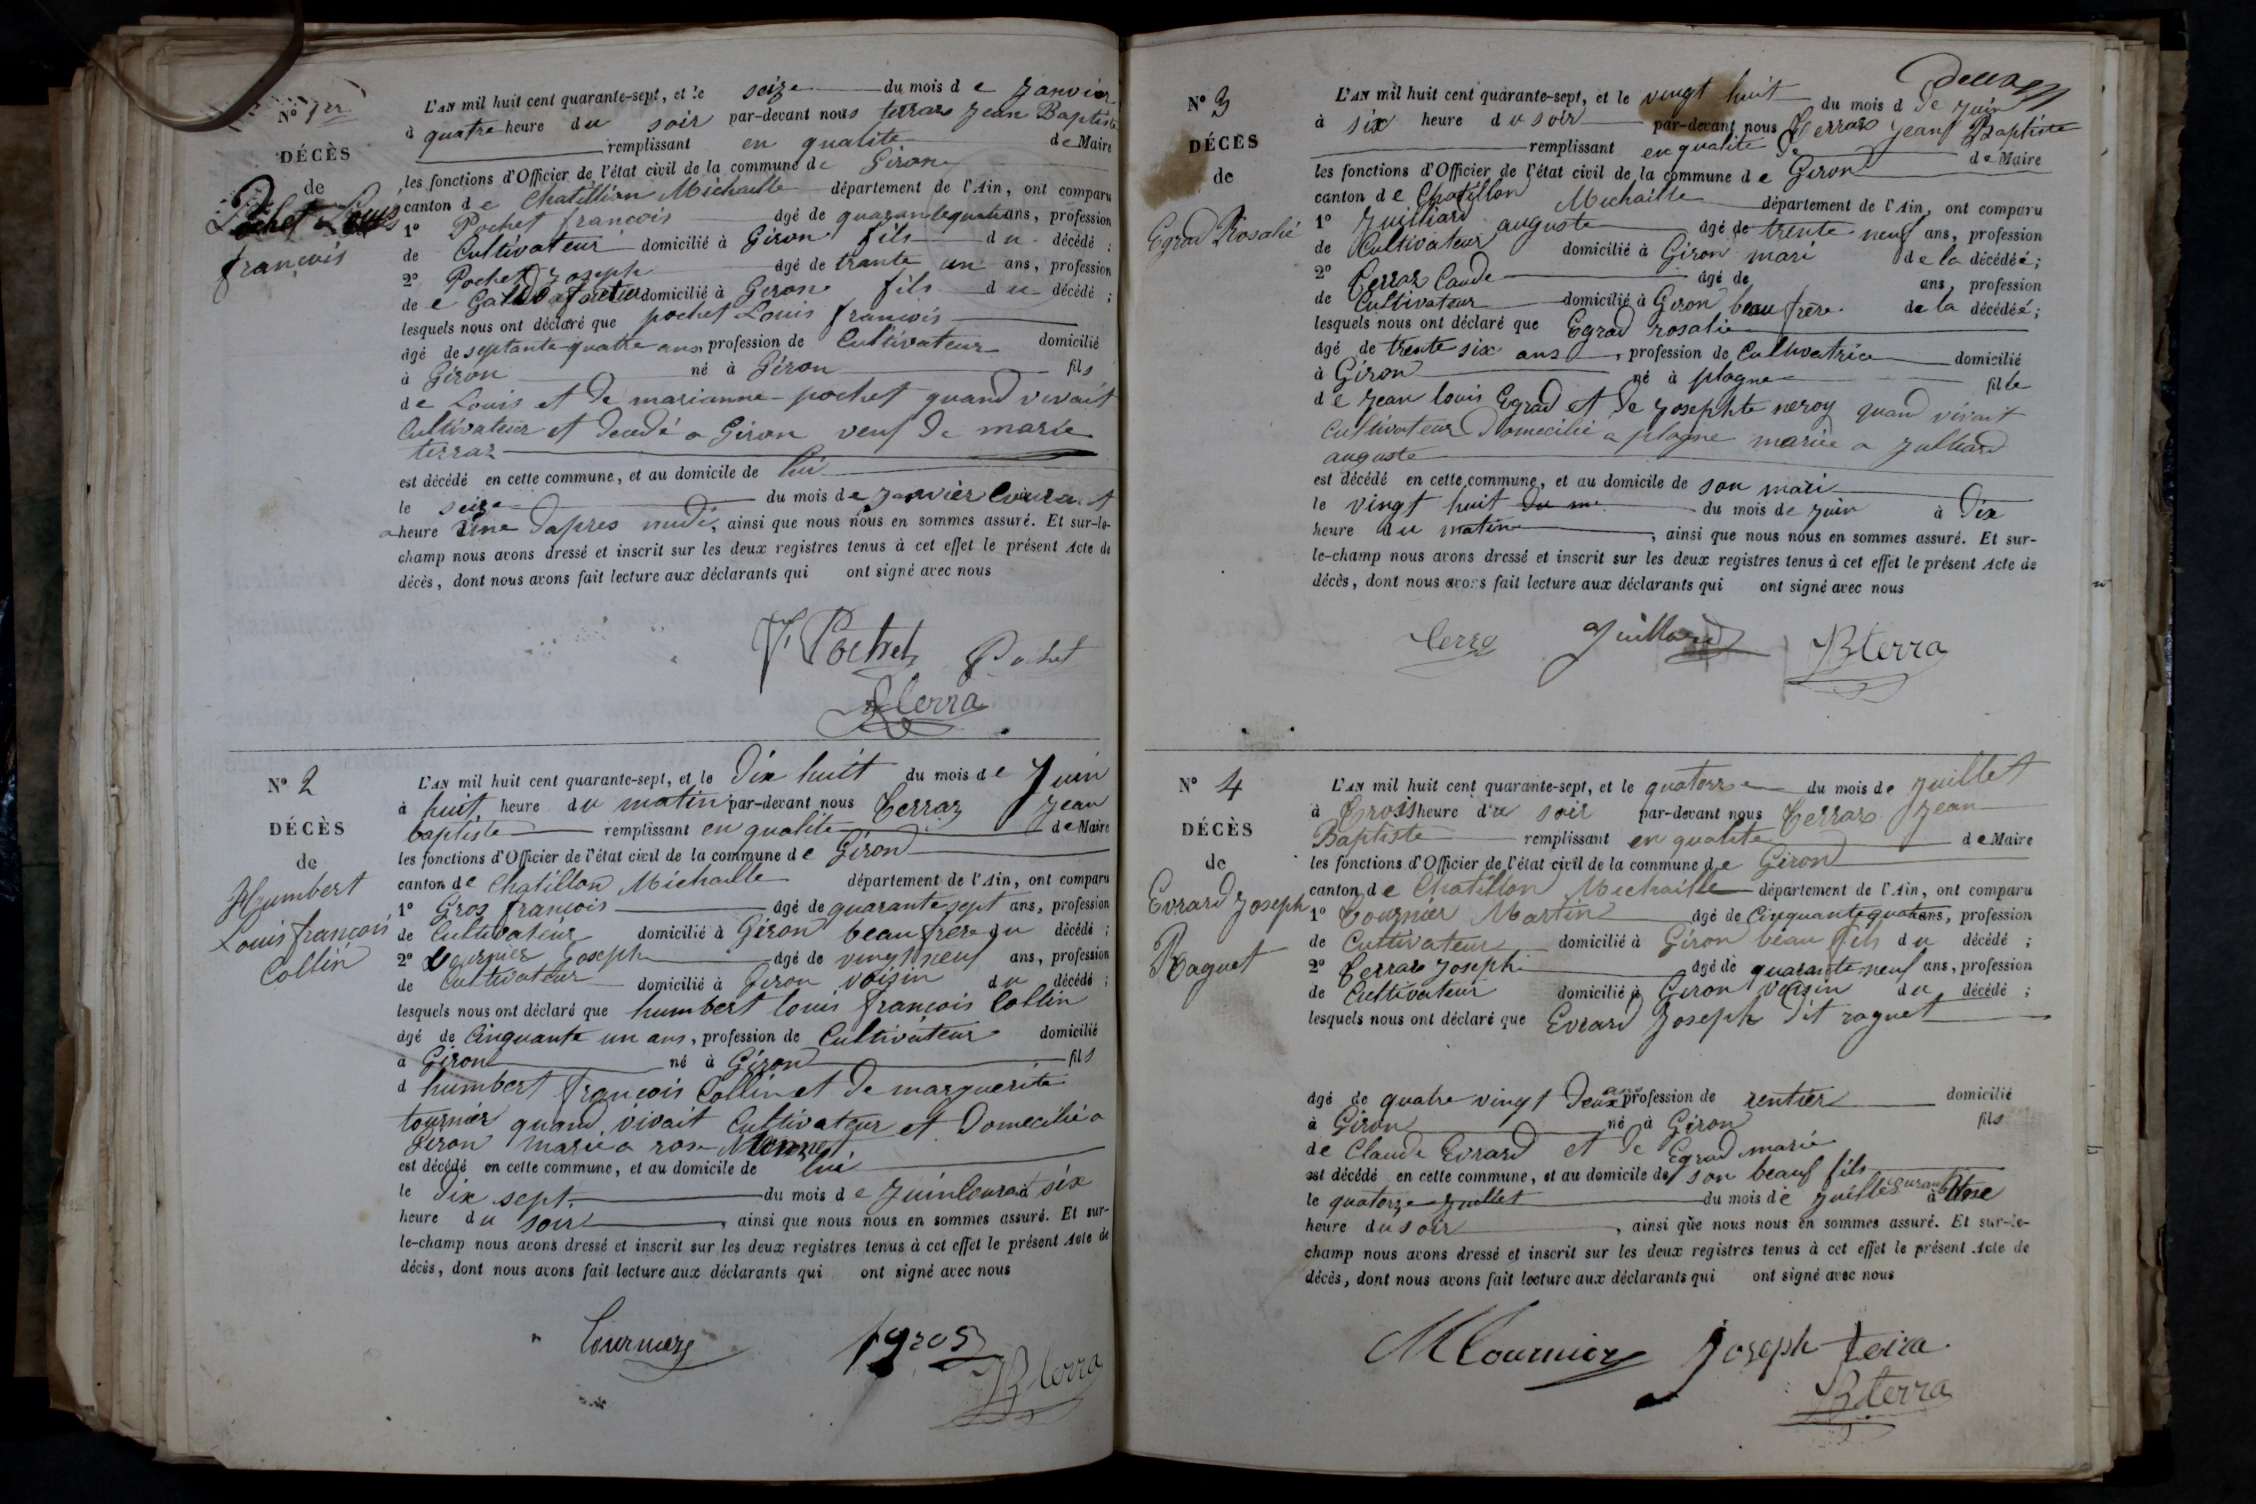 N° 1er
DÉCÈS
de
Pochet Louis
françois
L'AN mil huit cent quarante-sept, et le seize du mois de Janvier
à quatre heure du soir par-devant nous terraz Jean Baptiste
remplissant en qualite de Maire
les fonctions d'Officier de l'état civil de la commune de Giron
canton de Chatillion Michaille département de l'Ain, ont comparu
1° Pochet francois âgé de quarantequatre ans, profession
de Cultivateur domicilié à Giron fils du décédé ;
2° Pochet Joseph âgé de trante un ans, profession
de domicilié à Geron fils du décédé ;
lesquels nous ont déclaré que pochet Louis francois
âgé de septante-quatre ans, profession de Cultivateur domicilié
à Giron né à Giron fils
de Louis et de marianne pochet quand vivait
Cultivateur et decedé a Giron veuf de marie
terraz
est décédé en cette commune, et au domicile de lui
le seize du mois de Janvier Courant
a heure une dapres midi, ainsi que nous nous en sommes assuré. Et sur-le-
champ nous avons dressé et inscrit sur les deux registres tenus à cet effet le présent Acte de
décès, dont nous avons fait lecture aux déclarants qui ont signé avec nous
F Pochet Pochet
JBterra
N° 2
DÉCÈS
de
Humbert
Louis françois
Collin
L'AN mil huit cent quarante-sept, et le Dix huit du mois de Juin
à huit heure du matin par-devant nous Terraz Jean
baptiste remplissant en qualite de Maire
les fonctions d'Officier de l'état civil de la commune de Giron
canton de Chatillon Michaille département de l'Ain, ont comparu
1° Gros françois âgé de quarante sept ans, profession
de Cultivateur domicilié à Giron beau frere du décédé ;
2° tournier Joseph âgé de vingt neuf ans, profession
de Cultivateur domicilié à Geron voisin du décédé ;
lesquels nous ont déclaré que humbert louis françois Collin
âgé de Cinquante un ans, profession de Cultivateur domicilié
à Giron né à Giron fils
d humbert françois Collin et de marguerite
tournier quand vivait Cultivateur et Domecilié a
Giron marié a rose
est décédé en cette commune, et au domicile de lui
le Dix sept du mois de Juin Courant à six
heure du soir, ainsi que nous nous en sommes assuré. Et sur-
le-champ nous avons dressé et inscrit sur les deux registres tenus à cet effet le présent Acte de
décès, dont nous avons fait lecture aux déclarants qui ont signé avec nous
Tournier f gros
JBterra
N° 3
DÉCÈS
de
Egrad Rosalie
L'AN mil huit cent quarante-sept, et le vingt huit du mois de Juin
à six heure du soir par-devant nous Terraz Jean Baptiste
remplissant en qualite de de Maire
les fonctions d'Officier de l'état civil de la commune de Giron
canton de Chatillon Michaille département de l'Ain, ont comparu
1° Juilliard auguste âgé de trente neuf ans, profession
de Cultivateur domicilié à Giron mari de la décédéé ;
2° Terraz Caude âgé de ans, profession
de Cultivateur domicilié à Giron beau frère de la décédéé ;
lesquels nous ont déclaré que Egrad rosalie
âgé de trente six ans, profession de Cultivatrice domicilié
à Giron né à plagne fille
de Jean louis Egrad et de Josephte neroy quand vivait
Cultivateur Domecilié a plagne mariée a Julliard
auguste
est décédé en cette commune, et au domicile de son mari
le vingt huit du m du mois de Juin à Dix
heure du matin, ainsi que nous nous en sommes assuré. Et sur-
le-champ nous avons dressé et inscrit sur les deux registres tenus à cet effet le présent Acte de
décès, dont nous avons fait lecture aux déclarants qui ont signé avec nous
Juillard JBterra
N° 4
DÉCÈS
de
Evrard Joseph
Raguet
L'AN mil huit cent quarante-sept, et le quatorze du mois de Juillet
à Trois heure du soir par-devant nous Terraz Jean
Baptiste remplissant en qualite de Maire
les fonctions d'Officier de l'état civil de la commune de Giron
canton de Chatillon Michaille département de l'Ain, ont comparu
1° Tournier Martin âgé de Cinquantequatre ans, profession
de Cultivateur domicilié à Giron beau fils du décédé ;
2° Terraz Joseph âgé de quarante neuf ans, profession
de Cultivateur domicilié à Giron voisin du décédé ;
lesquels nous ont déclaré que Evrard Joseph dit raguet
âgé de quatre vingt deux ans profession de rentier domicilié
à Giron né à Giron fils
de Claude Evrard et de Egrad marie
est décédé en cette commune, et au domicile de son beauf fils
le quatorze Juillet du mois de Juillet Courant à Une
heure du soir, ainsi que nous nous en sommes assuré. Et sur-le-
champ nous avons dressé et inscrit sur les deux registres tenus à cet effet le présent Acte de
décès, dont nous avons fait lecture aux déclarants qui ont signé avec nous
MTournier Joseph teira
JBterra